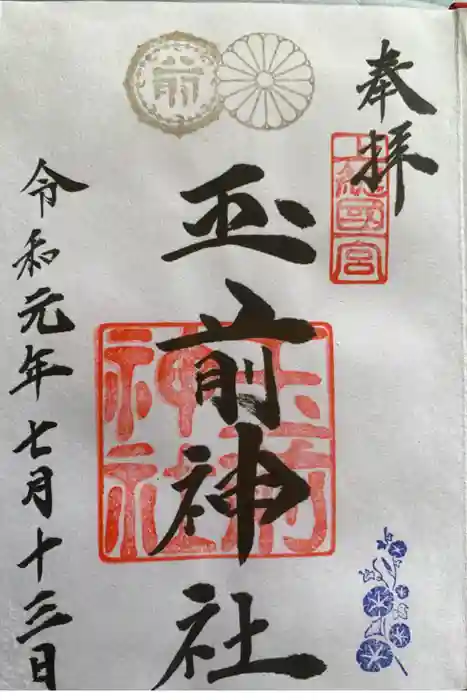 奉拝
上総國一宮
玉前神社
玉前神社
令和元年七月十三日
前